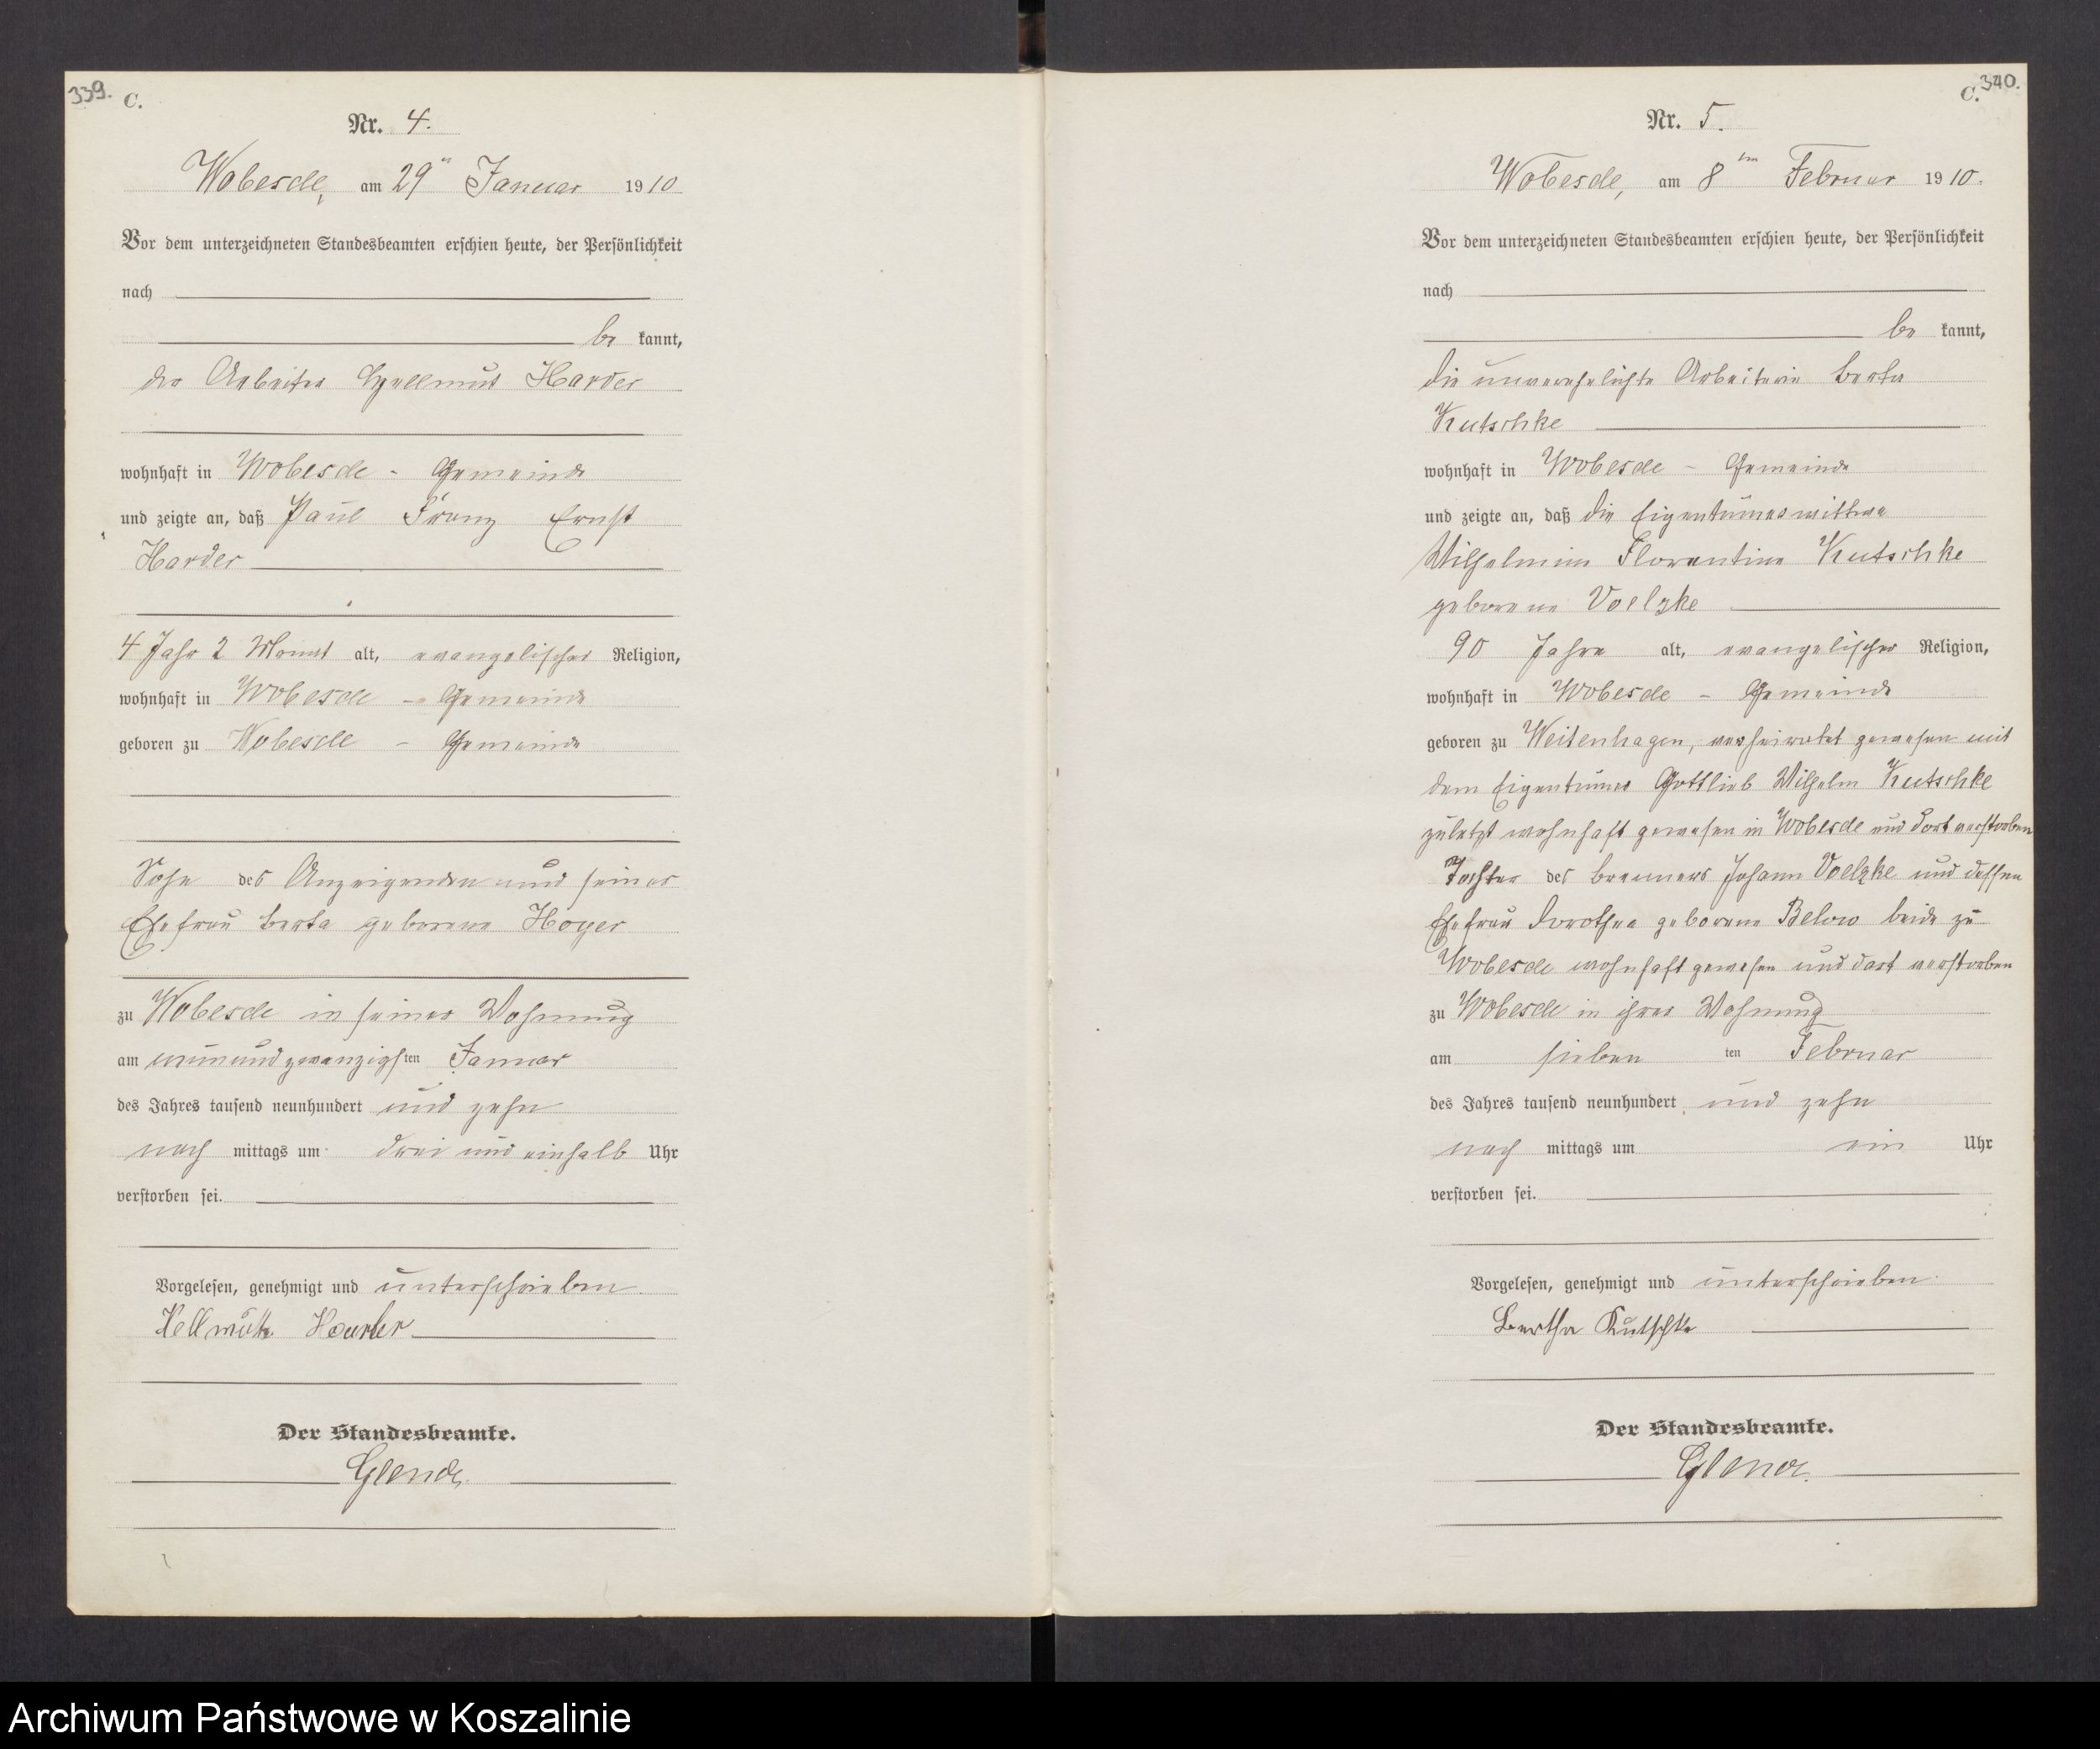 339. C.
Nr. 4.
Wobesde, am 29ten Januar 1910
Vor dem unterzeichneten Standesbeamten erschien heute, der Persönlichkeit
nach
be kannt,
der Arbeiter Hellmut Harder
wohnhaft in Wobesde - Gemeinde
und zeigte an, daß Paul Franz Ernst
Harder
4 Jahr 2 Monat alt, evangelischer Religion,
wohnhaft in Wobesde - Gemeinde
geboren zu Wobesde - Gemeinde
Sohn des Anzeigenden und seiner
Ehefrau Berta geborene Hoyer
zu Wobesde in seiner Wohnung
am neunundzwanzigsten Januar
des Jahres tausend neunhundert und zehn
nach mittags um drei und einhalb Uhr
verstorben sei.
Vorgelesen, genehmigt und unterschrieben
Hellmuth Harder
Der Standesbeamte.
340. C.
Nr. 5.
Wobesde, am 8ten Februar 1910.
Vor dem unterzeichneten Standesbeamten erschien heute, der Persönlichkeit
nach
be kannt,
die unverehelichte Arbeiterin Berta
Kutschke
wohnhaft in Wobesde - Gemeinde
und zeigte an, daß die Eigentümerwittwe
Wilhelmine Florentine Kutschke
geborene Voelzke
90 Jahre alt, evangelischer Religion,
wohnhaft in Wobesde - Gemeinde
geboren zu Weitenhagen, verheiratet gewesen mit
dem Eigentümer Gottlieb Wilhelm Kutschke
zuletzt wohnhaft gewesen in Wobesde und dort verstorben
Tochter des Brenners Johann Voelzke und dessen
Ehefrau Dorothea geborene Below beide zu
Wobesde wohnhaft gewesen und dort verstorben
zu Wobesde in ihrer Wohnung
am sieben ten Februar
des Jahres tausend neunhundert und zehn
nach mittags um ein Uhr
verstorben sei.
Vorgelesen, genehmigt und unterschrieben
Bertha Kutschke
Der Standesbeamte.
Archiwum Państwowe w Koszalinie